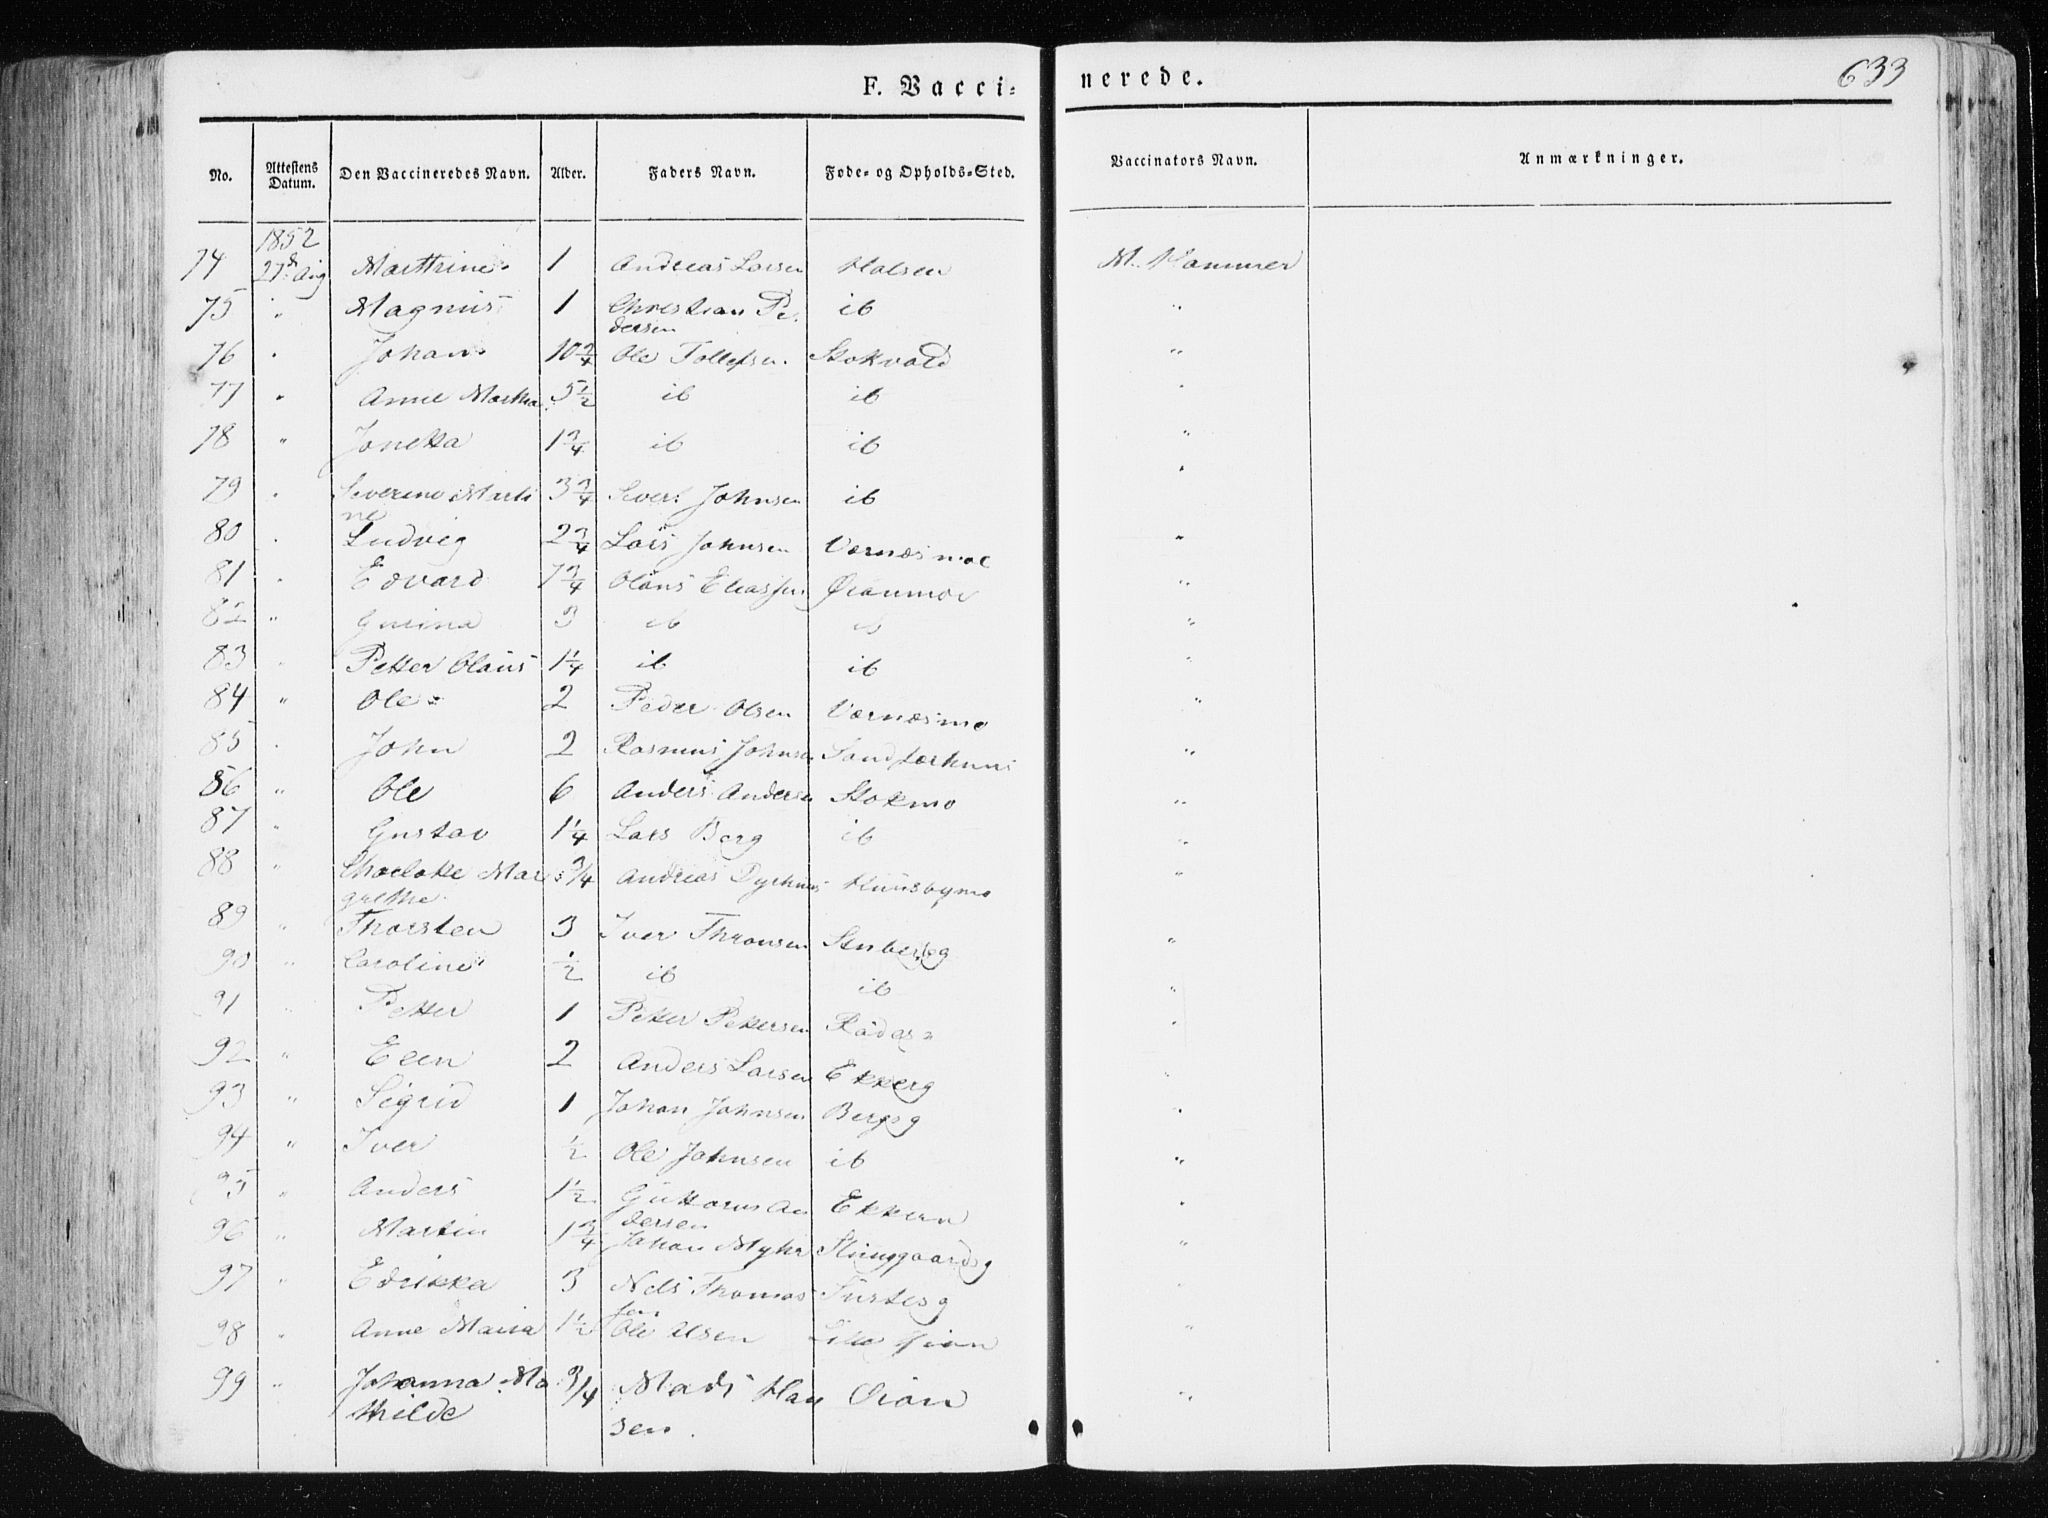 F. Vacci= nerede. 633
No. Attestens Datum. Den Vaccineredes Navn. Alder. Faders Navn. Føde= og Opholds=Sted. Vaccinators Navn. Anmærkninger.
1852
74 27de Aug Marthrine 1 Andreas Larsen Halsen M. Hammer
75 " Magnus 1 Christian Pe- ib "
dersen
76 " Johan 10 3/4 Ole Tollefsen Stokvold "
77 " Anne Martha 5 1/2 ib ib "
78 " Jonetta 1 3/4 ib ib "
79 " Severine Marti 3 3/4 Sivert Johnsen ib "
ne
80 " Ludvig 2 3/4 Lars Johnsen Værnæsmoe "
81 " Edvard 7 3/4 Olaus Eliassen Øianmoe "
82 " Gurina 3 ib ib "
83 " Petter Olaus 1 1/4 ib ib "
84 " Ole 2 Peder Olsen Værnæsmo "
85 " John 2 Rasmus Johnsen "
86 " Ole 6 Anders Andersen Stokmo "
87 " Gustav 1 1/4 Lars Berg ib "
88 " Charlotte Mar 3/4 Andreas Huusbymo "
grethe
89 " Thorsten 3 Iver Thronsen Stuberg "
90 " Caroline 1/2 ib ib "
91 " Petter 1 Petter Pettersen "
92 " Elen 2 Anders Larsen "
93 " Sigrid 1 Johan Johnsen "
94 " Iver 1/2 Ole Johnsen ib "
95 " Anders 1 1/2 Guttorm An Ekkern "
dersen
96 " Martin 1 3/4 Johan Myhr "
97 " Edrikka 3 Nels Thomas "
sen
98 " Anne Maria 1 1/2 Ole Olsen "
99 " Johanna Ma 3/4 Mads Han Øian "
thilde sen